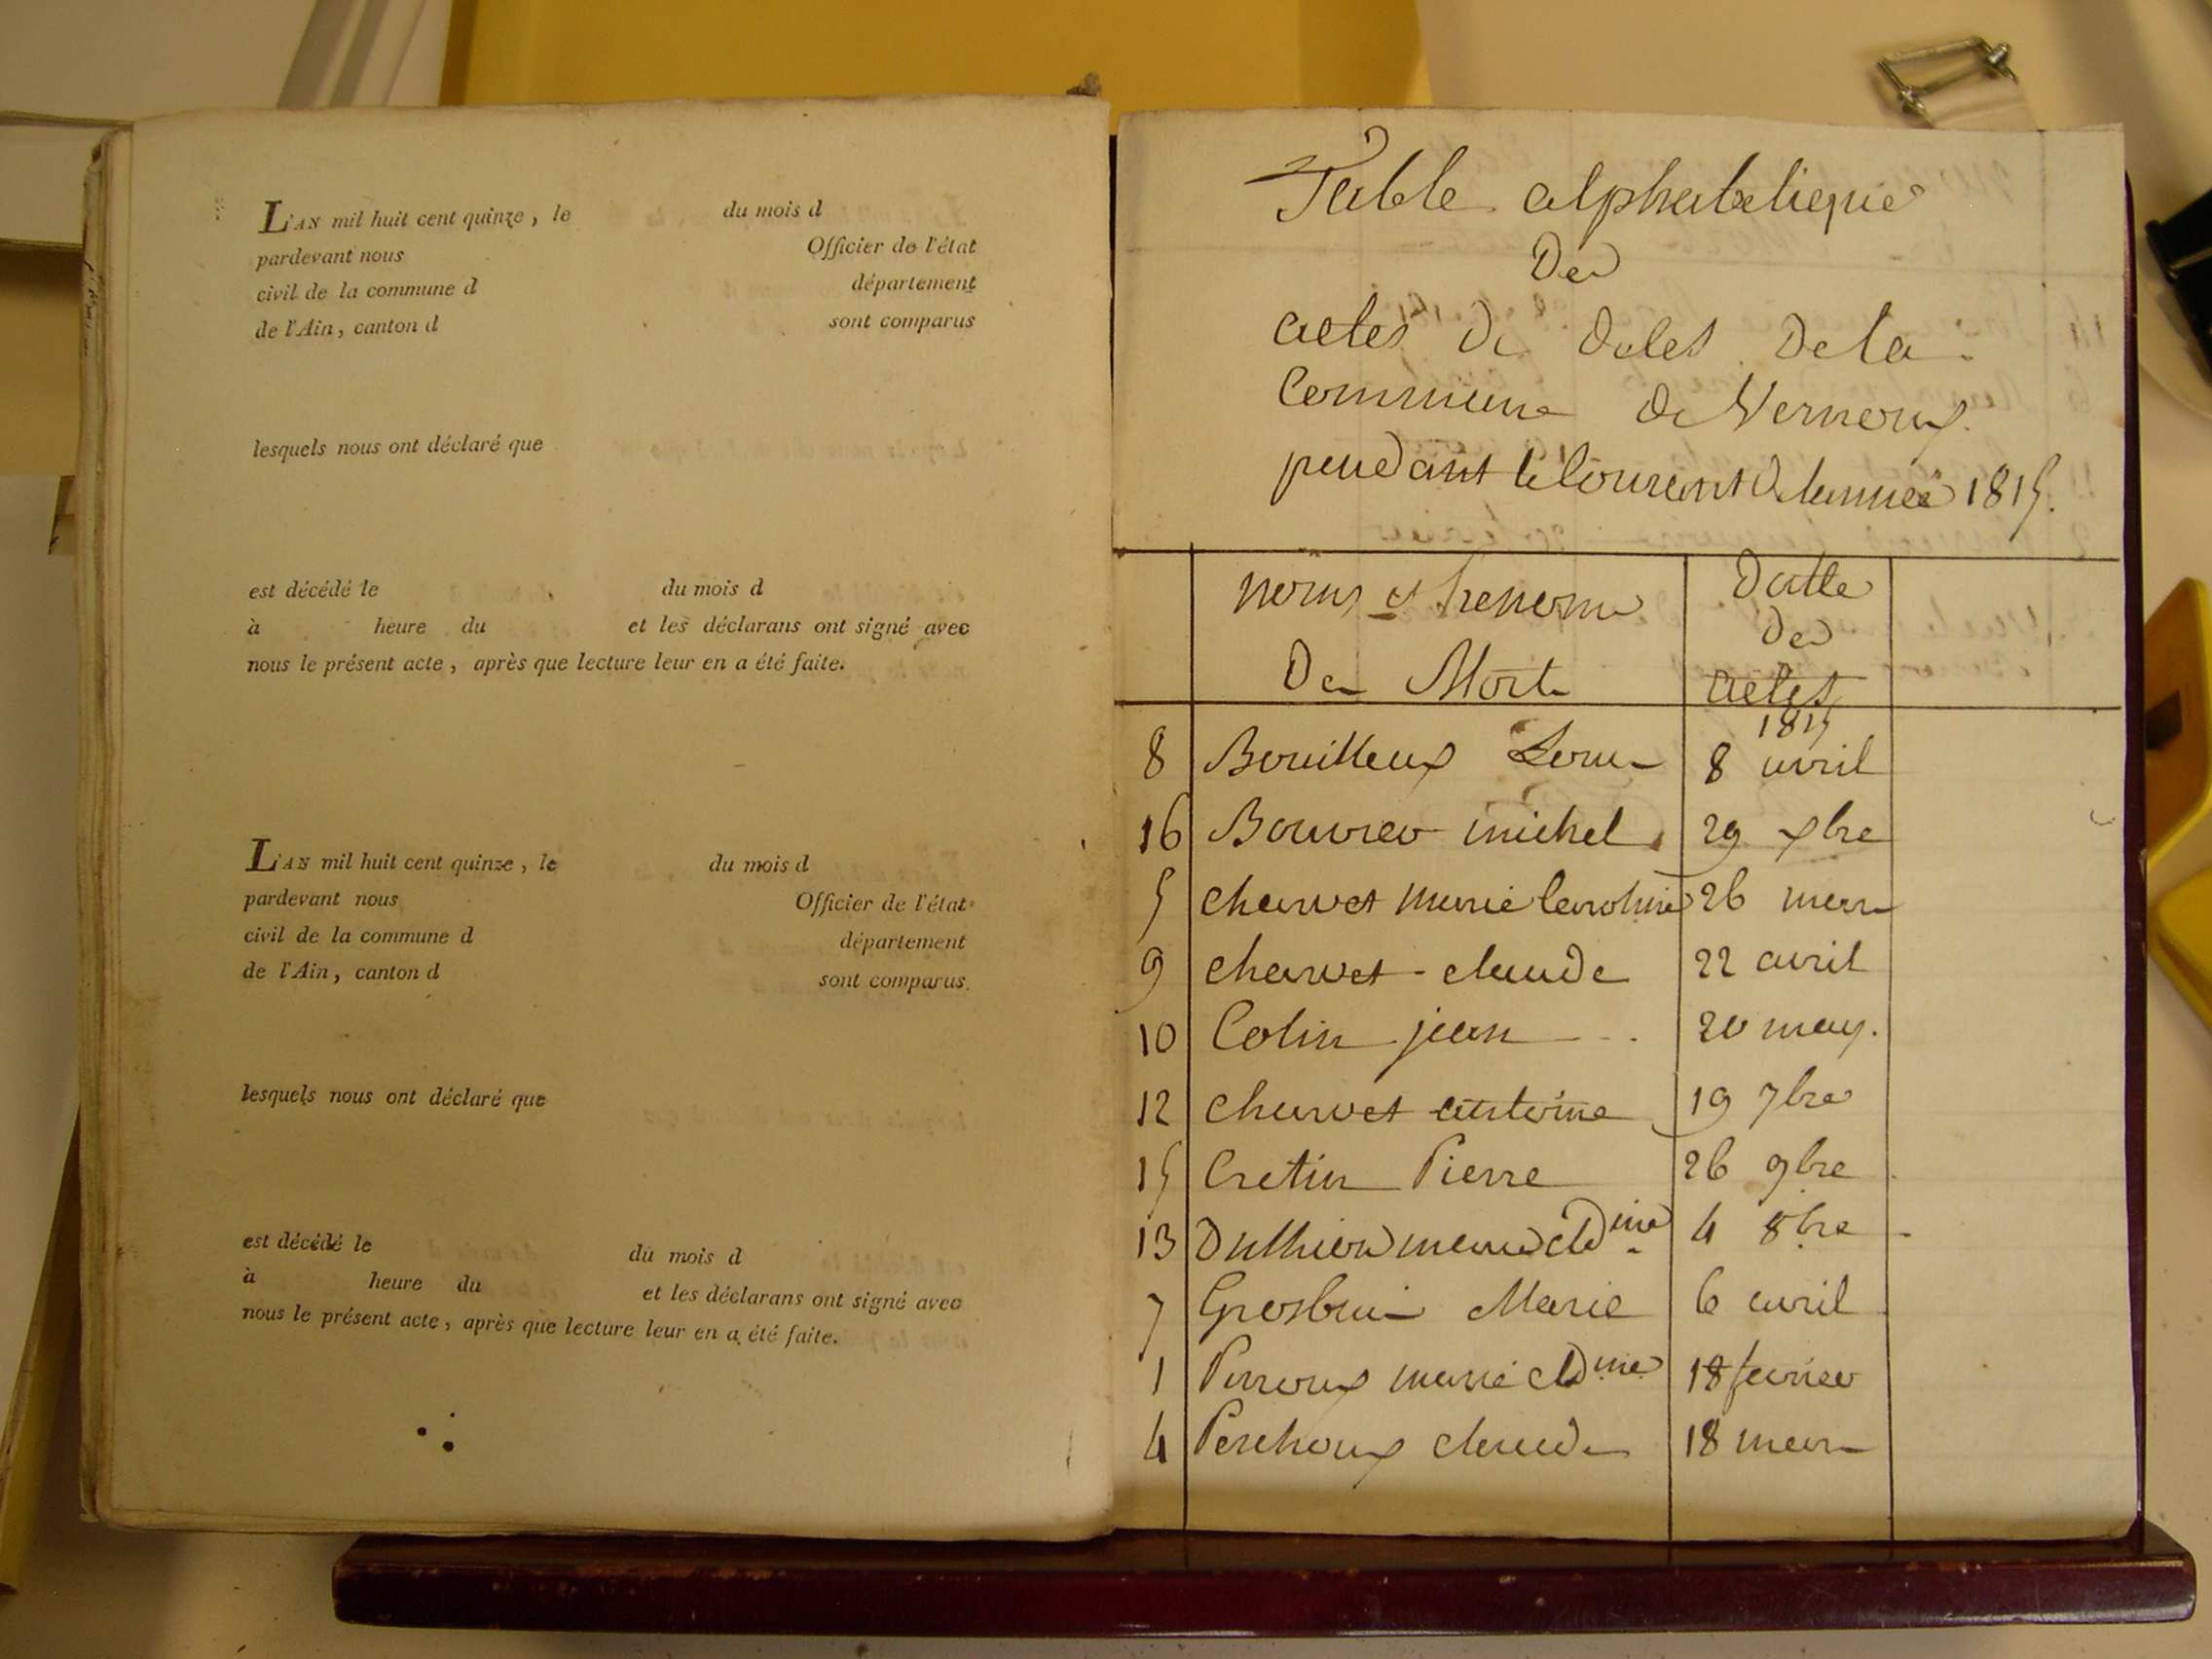 L'AN mil huit cent quinze, le du mois d
pardevant nous Officier de l'état
civil de la commune d département
de l'Ain, canton d sont comparus
lesquels nous ont déclaré que
est décédé le du mois d
à heure du et les déclarans ont signé avec
nous le présent acte, après que lecture leur en a été faite.
L'AN mil huit cent quinze, le du mois d
pardevant nous Officier de l'état
civil de la commune d département
de l'Ain, canton d sont comparus
lesquels nous ont déclaré que
est décédé le du mois d
à heure du et les déclarans ont signé avec
nous le présent acte, après que lecture leur en a été faite.
Table alphabetique
Des
actes de De la
Commune de Vernoux
pendant le Courant de lannée 1815.
noms et
Des Morts
Datte
Des
actes
1815
8 Bouilloux Louis 8 avril
16 Bouvier michel 29 xbre
5 charvet marie 26 mars
9 charvet claude 22 avril
10 Colin jean 20 may.
12 charvet antoine 19 7bre
15 Cretin Pierre 26 9bre
13 marie cldine 4 8bre
7 Marie 6 avril
1 Perroux marie cldine 18 fevrier
4 claude 18 mars